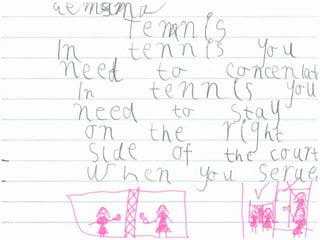 Tennis
In tennis you
need to concentrat
In tennis you
need to stay
on the right
side of the court
when you serve.